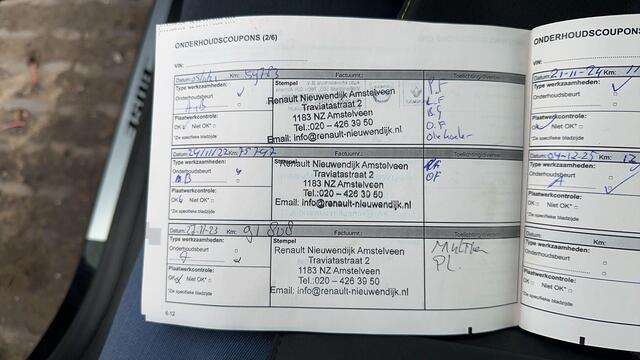 ONDERHOUDSCOUPONS (2/6)
VIN:
Datum: Km: 59783 Factuurnr.: Toelichting/overige
Type werkzaamheden:
Onderhoudsbeurt
A+B
Plaatwerkcontrole:
OK Niet OK*
*Zie specifieke bladzijde
Stempel
Renault Nieuwendijk Amstelveen
Traviatastraat 2
1183 NZ Amstelveen
Tel.:020 – 426 39 50
Email: info@renault-nieuwendijk.nl
P.F
L.F
B.G
O.F
Datum: 24/11/22 Km: 75747 Factuurnr.: Toelichting/overige
Type werkzaamheden:
Onderhoudsbeurt
B
Plaatwerkcontrole:
OK Niet OK*
*Zie specifieke bladzijde
Stempel
Renault Nieuwendijk Amstelveen
Traviatastraat 2
1183 NZ Amstelveen
Tel.:020 – 426 39 50
Email: info@renault-nieuwendijk.nl
OF
Datum: 27-11-23 Km: 91808 Factuurnr.: Toelichting/overige
Type werkzaamheden:
Onderhoudsbeurt
A
Plaatwerkcontrole:
OK Niet OK*
*Zie specifieke bladzijde
Stempel
Renault Nieuwendijk Amstelveen
Traviatastraat 2
1183 NZ Amstelveen
Tel.:020 – 426 39 50
Email: info@renault-nieuwendijk.nl
PL.
6.12
ONDERHOUDSCOUPONS
VIN:
Datum: 21-11-24 Km:
Type werkzaamheden:
Onderhoudsbeurt
Plaatwerkcontrole:
OK Niet OK*
*Zie specifieke bladzijde
Datum: 04-12-25 Km: 12
Type werkzaamheden:
Onderhoudsbeurt
A
Plaatwerkcontrole:
OK Niet OK*
*Zie specifieke bladzijde
Datum: Km:
Type werkzaamheden:
Onderhoudsbeurt
Plaatwerkcontrole:
OK Niet OK*
*Zie specifieke bladzijde